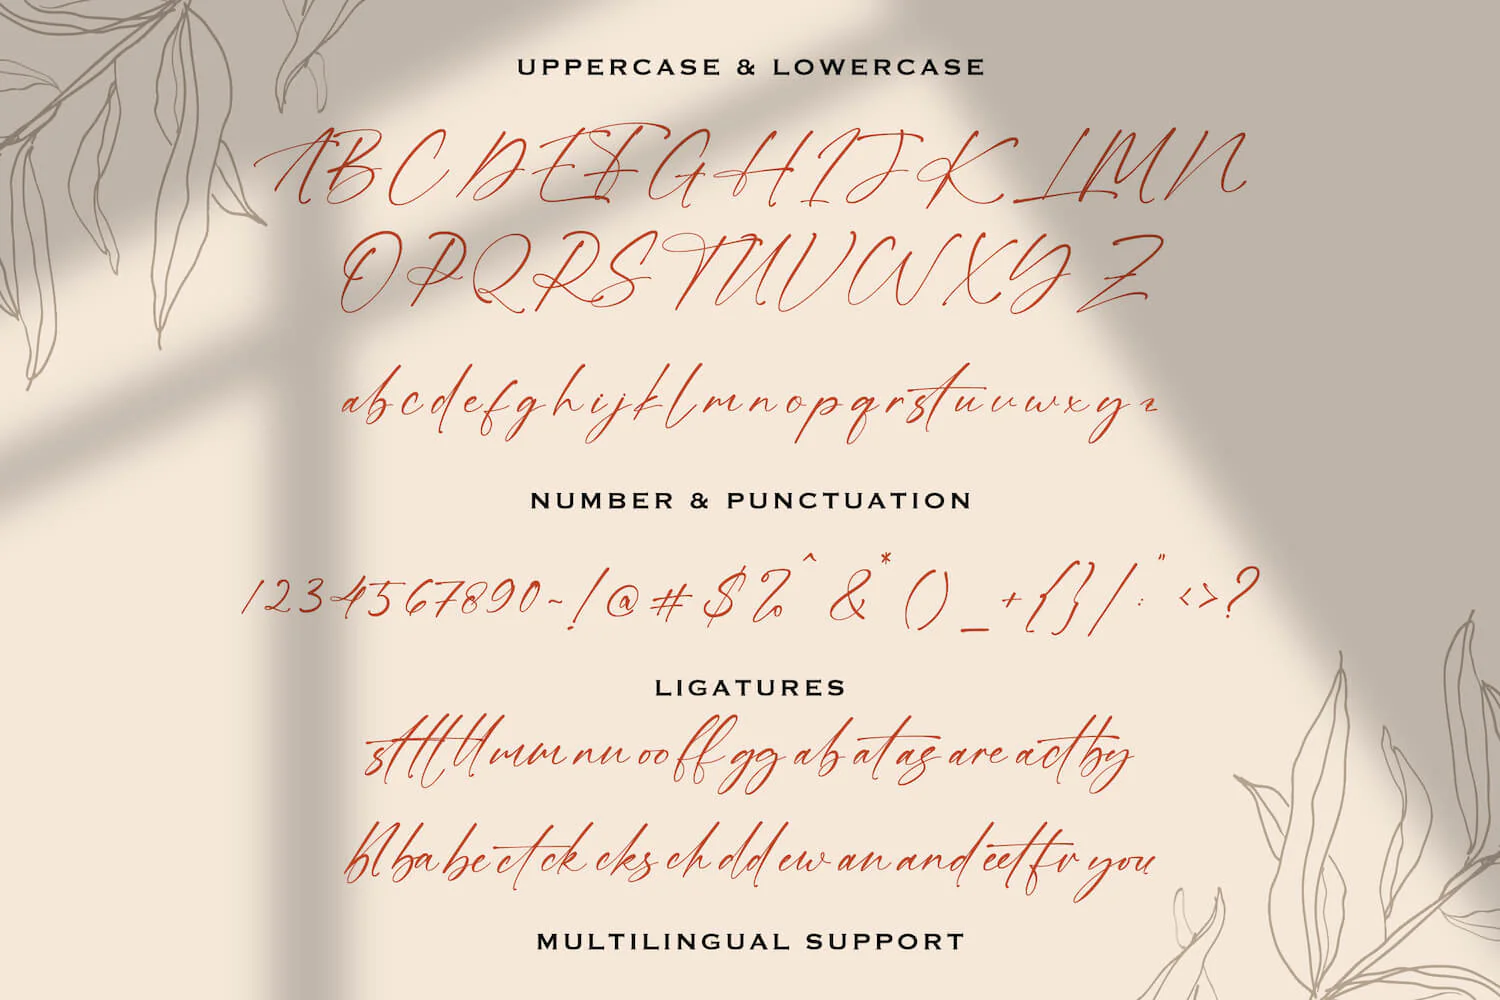 UPPERCASE & LOWERCASE
ABCDEFGHIJKLMN
OPQRSTUVWXYZ
abcdefghijklmnopqrstuvwxyz
NUMBER & PUNCTUATION
1234567890~!@#$%^&*()_+{}/:"<>?
LIGATURES
st tt ll mm nn oo ff gg ab at as are act by
bl ba be ct ck cks ch dd ew an and ee et fr you
MULTILINGUAL SUPPORT